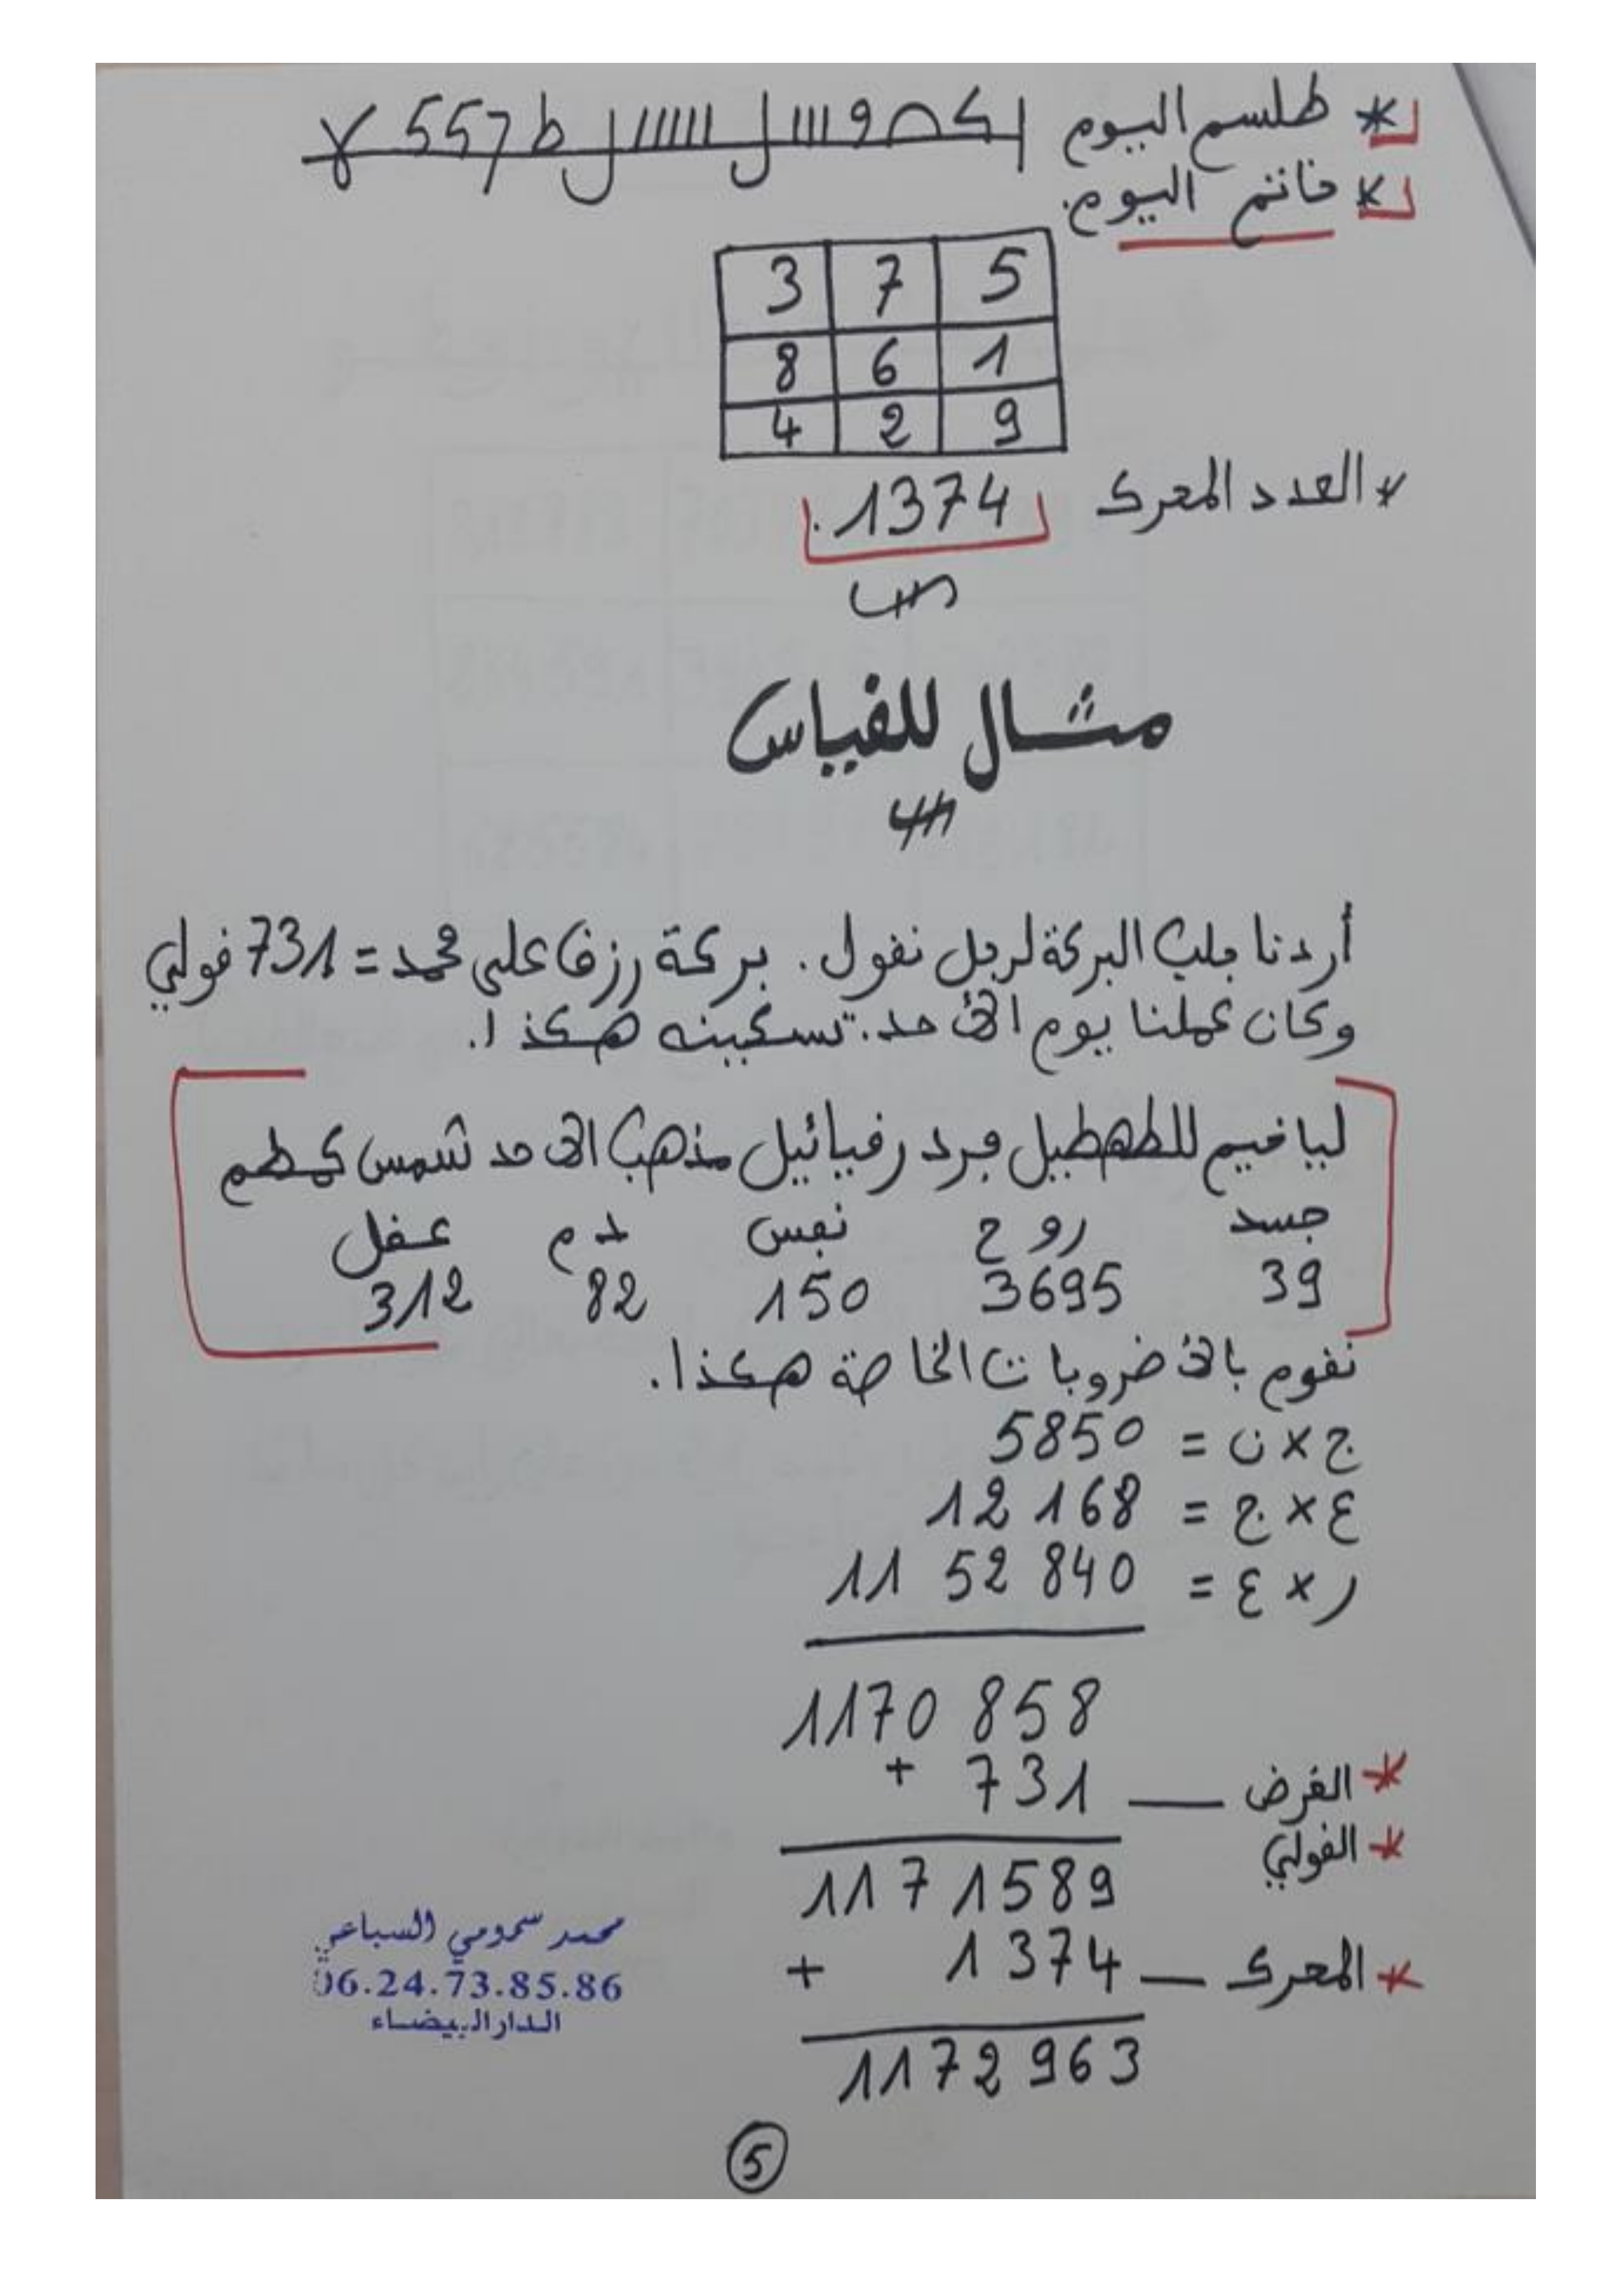 * طلسم اليوم
* خاتم اليوم.
3 7 5
8 6 1
4 2 9
* العدد المحرك 1374.
مثال للقياس
أردنا جلب البركة لرجل نقول. بركة رزق على محمد = 731 قولي
وكان عملنا يوم الأحد. تسكينه هكذا.
لياخيم للطهطيل فرد رفيائيل مذهب الأحد شمس كمطم
جسد روح نفس دم عقل
39 3695 150 82 312
نقوم بالأضروبات الخاصة هكذا.
ج × ن = 5850
ع × ج = 12 168
ر × ع = 11 52 840
1170 858
* الغرض — 731 +
* القولي
1171589
* المحرك — 1374 +
1172 963
محمد سمومي السباعي
06.24.73.85.86
الدار البيضاء
5